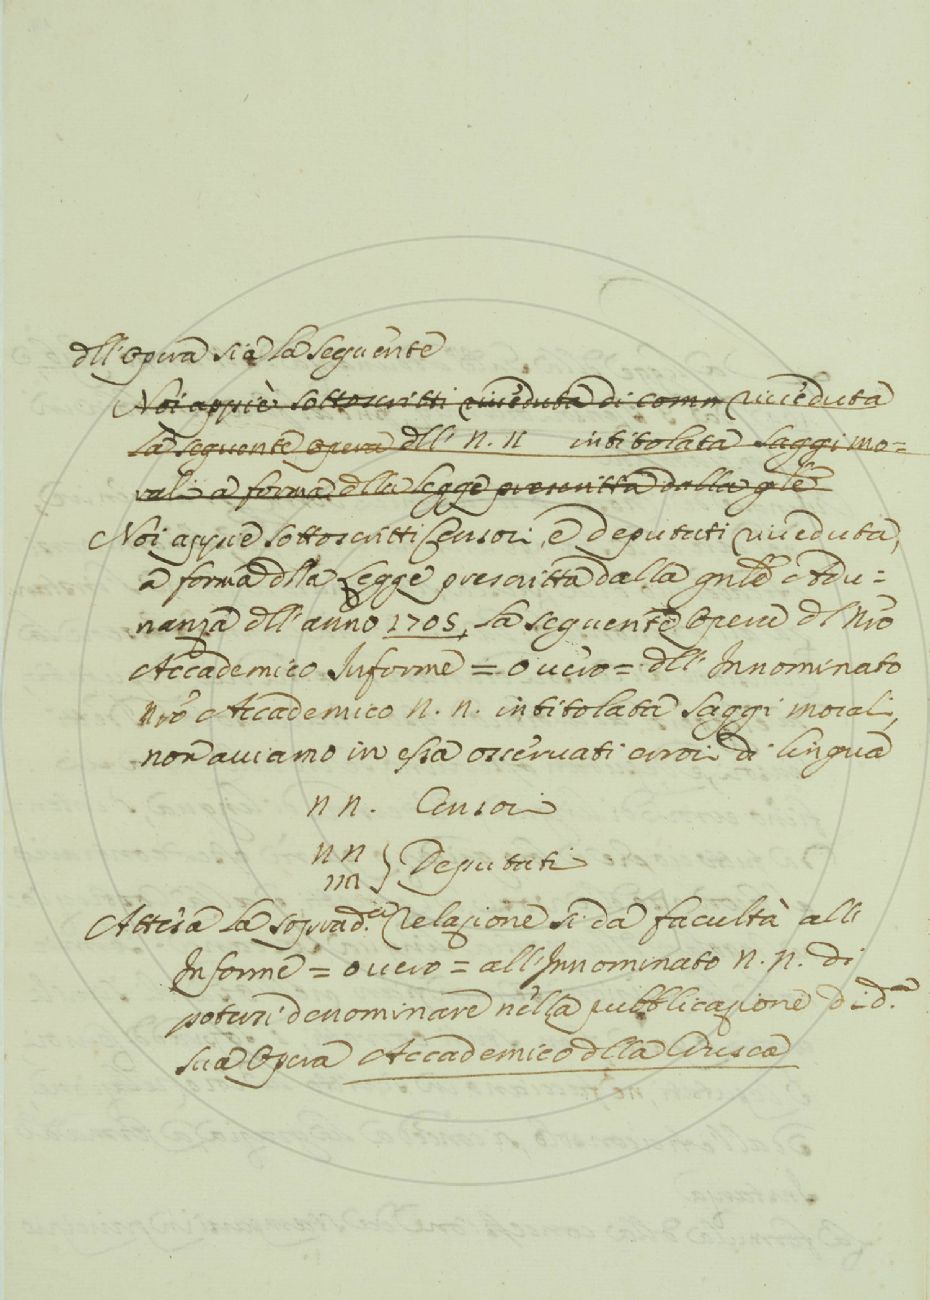 dll'Opera sia la seguente
Noi appiè sottoscritti riveduta di comm riveduta
la seguente opera dll' N. N intitolata Saggi mo=
rali a forma dlla legge prescritta dalla gnle
Noi appiè sottoscritti Censori, e deputati riveduta,
a forma dlla Legge prescritta dalla gnle Adu=
nanza dll'anno 1705, la seguente Opera dl Nro
Accademico Informe = overo = dll' Innominato
Nro Accademico N. N. intitolata Saggi morali,
non aviamo in essa osservati errori di lingua
N N. Censori
N N } Deputati
NN
Attesa la soprad.ta relazione si da facultà all'
Informe = overo = all'Innominato N. N. di
potersi denominare nella pubblicazione di d.a
sua Opera Accademico dlla Crusca